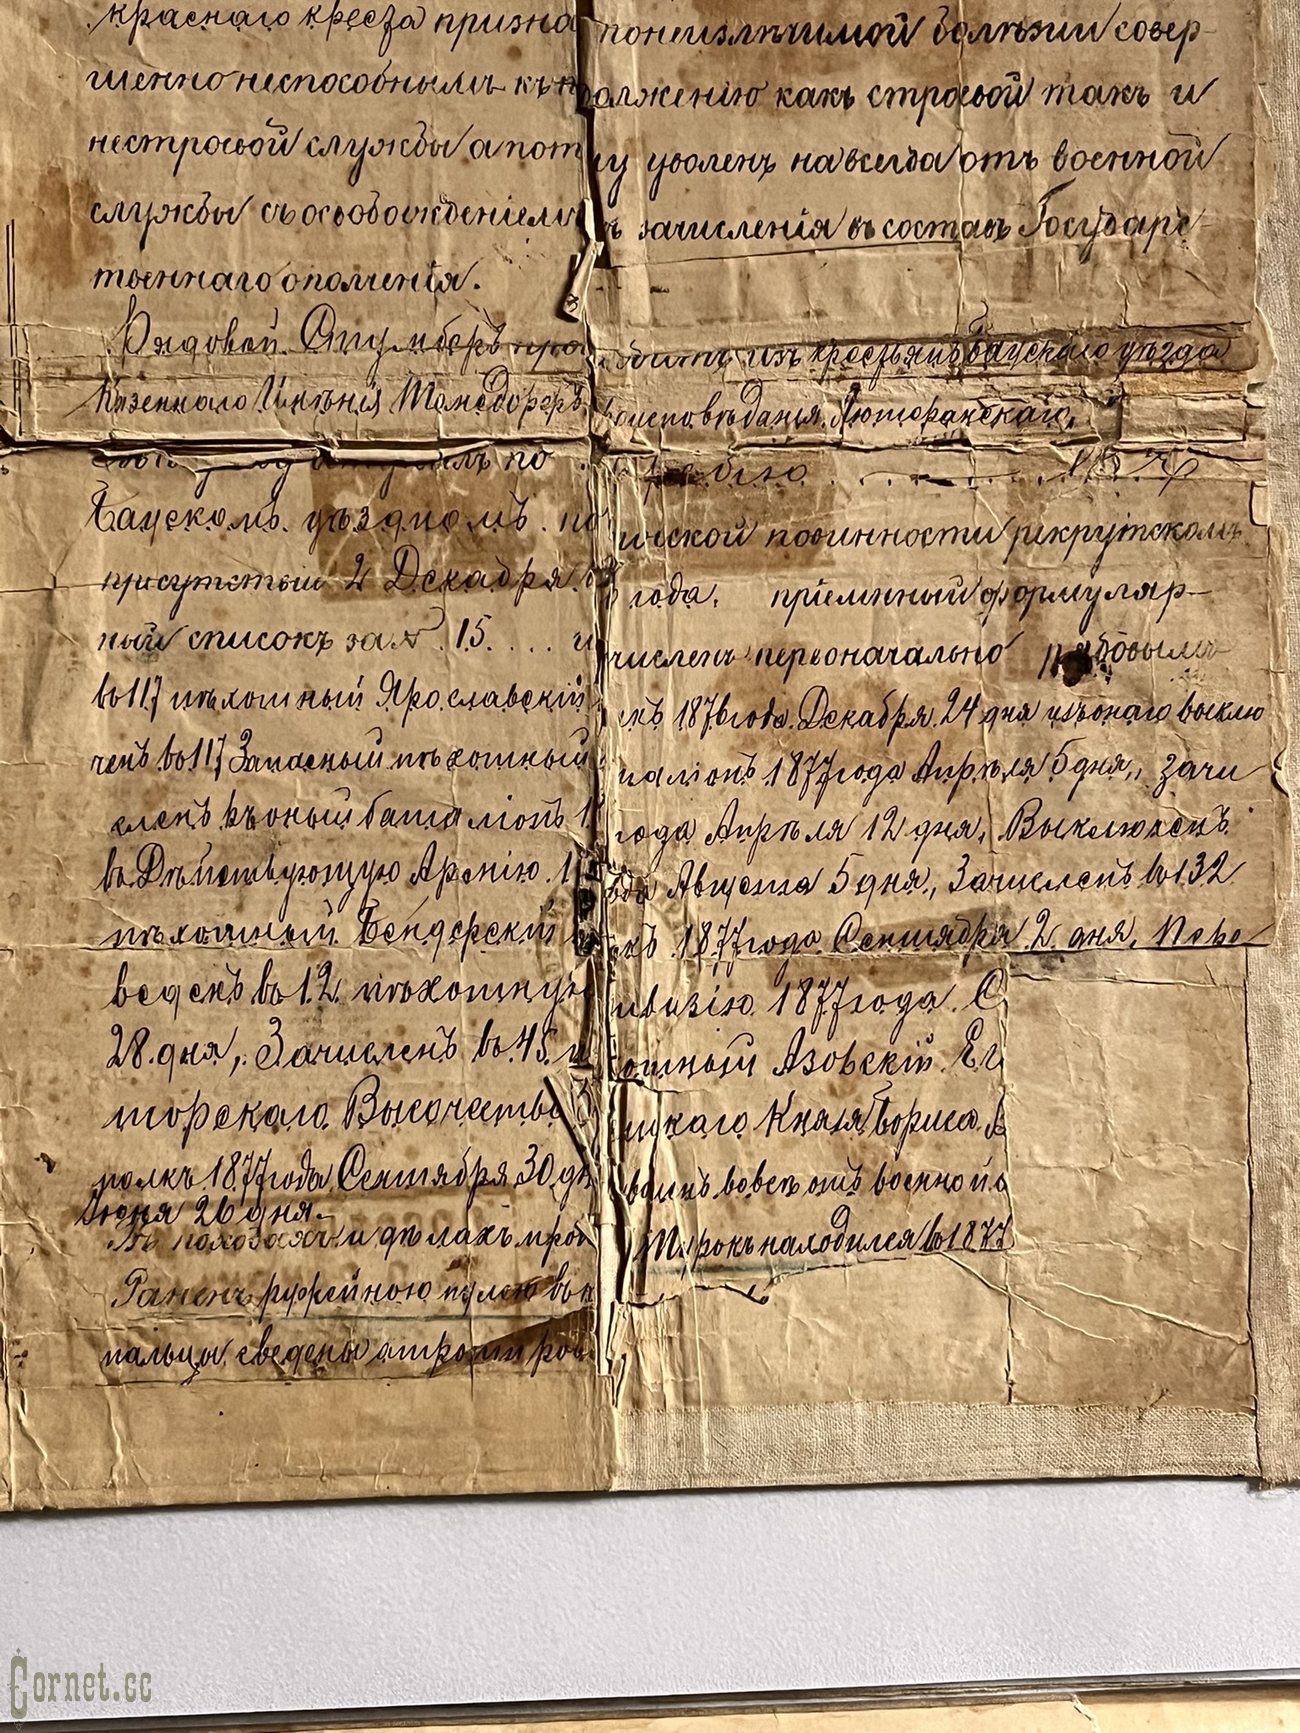 краснаго креста призна понеизлѣчимой болѣзни совер-
шенно неспособнымъ къ п должению какъ строевой такъ и
нестроевой службы а пот му уволенъ навсегда отъ военной
службы съ освобожденіемъ зачисленія въ составъ Государс-
твеннаго ополченія.
Рядовой изъ крестьянъ Баускаго уѣзда
Казеннаго Имѣнія вѣроисповѣданія Лютеранскаго,
по жребію
Баускомъ уѣздномъ по инской повинности рекрутскомъ
присутствіи 2 Декабря года, пріемный формуляр-
ный списокъ за № 15 .... и численъ первоначально рядовымъ
въ 117 пѣхотный Ярославскій лкъ 1876 года Декабря 24 дня изъ онаго выклю
ченъ въ 117 Запасный пѣхотный таліонъ 1877 года Апрѣля 5 дня, зачи
сленъ въ оный баталіонъ 1 года Апрѣля 12 дня, Выключенъ
въ Дѣйствующую Армію 1 ода Августа 5 дня, Зачисленъ въ 132
пѣхотный Бендерскій лкъ 1877 года Сентября 2 дня, Пере-
веденъ въ 12 пѣхотную ивизію 1877 года С
28 дня, Зачисленъ въ 45 п отный Азовскій Ег
торскаго Высочества икаго Князя Бориса В
полкъ 1877 года Сентября 30 дн воленъ вовсе отъ военной с
Іюня 26 дня.
Въ походахъ и дѣлахъ прот Турокъ находился въ 1877
Раненъ ружейною пулею въ
пальцы сведены атрофиров
Cornet.cc